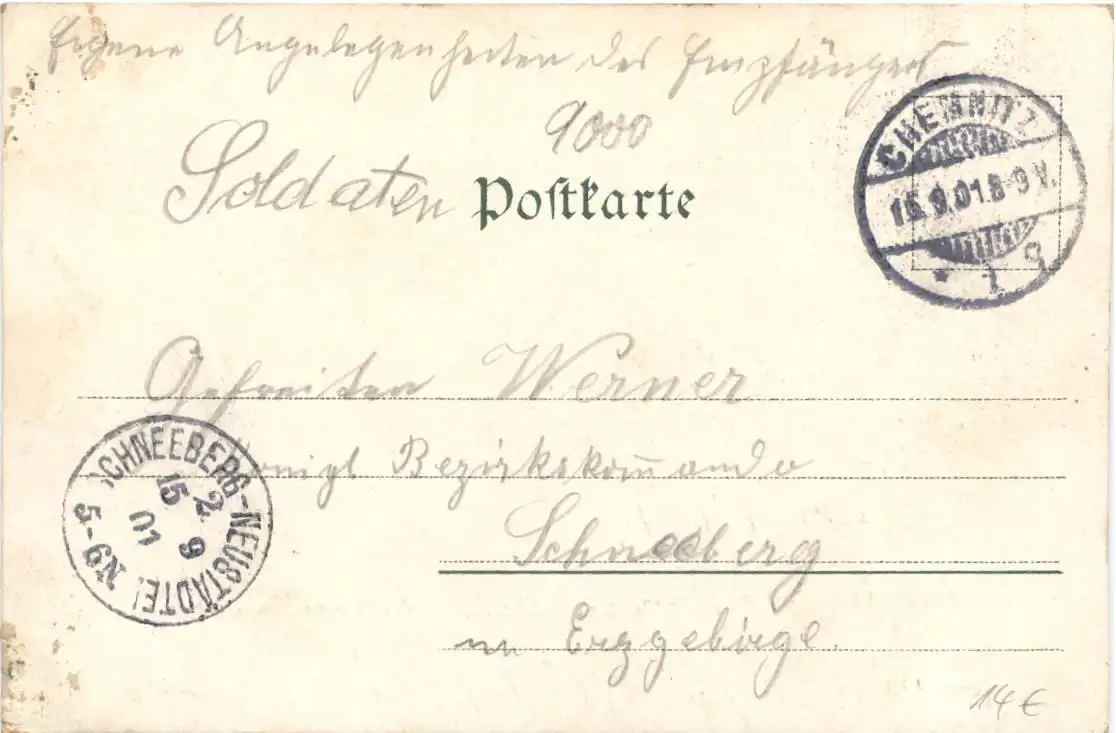 Eigene Angelegenheiten des Empfängers
9000
Soldaten Postkarte
CHEMNITZ
15.9.01.8-9 V.
* 1 q
Gefreiten Werner
Königl Bezirkskom̅ando
SCHNEEBERG-NEUSTÄDTEL
2
15 9
01
5-6N
Schneeberg
im Erzgebirge.
14 €